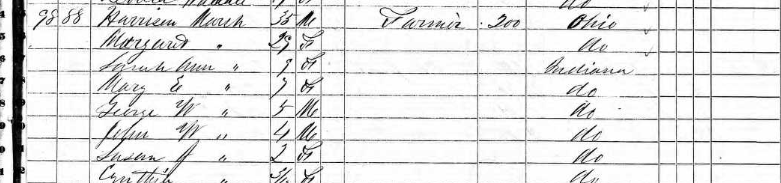 do
98 88 Harrison Marsh 35 M Farmer 200 Ohio
Margaret " 29 F do
Sarah Ann " 9 F Indiana
Mary E " 7 F do
George W " 5 M do
John W " 4 M do
Susan J " 2 F do
Cynthia " F do